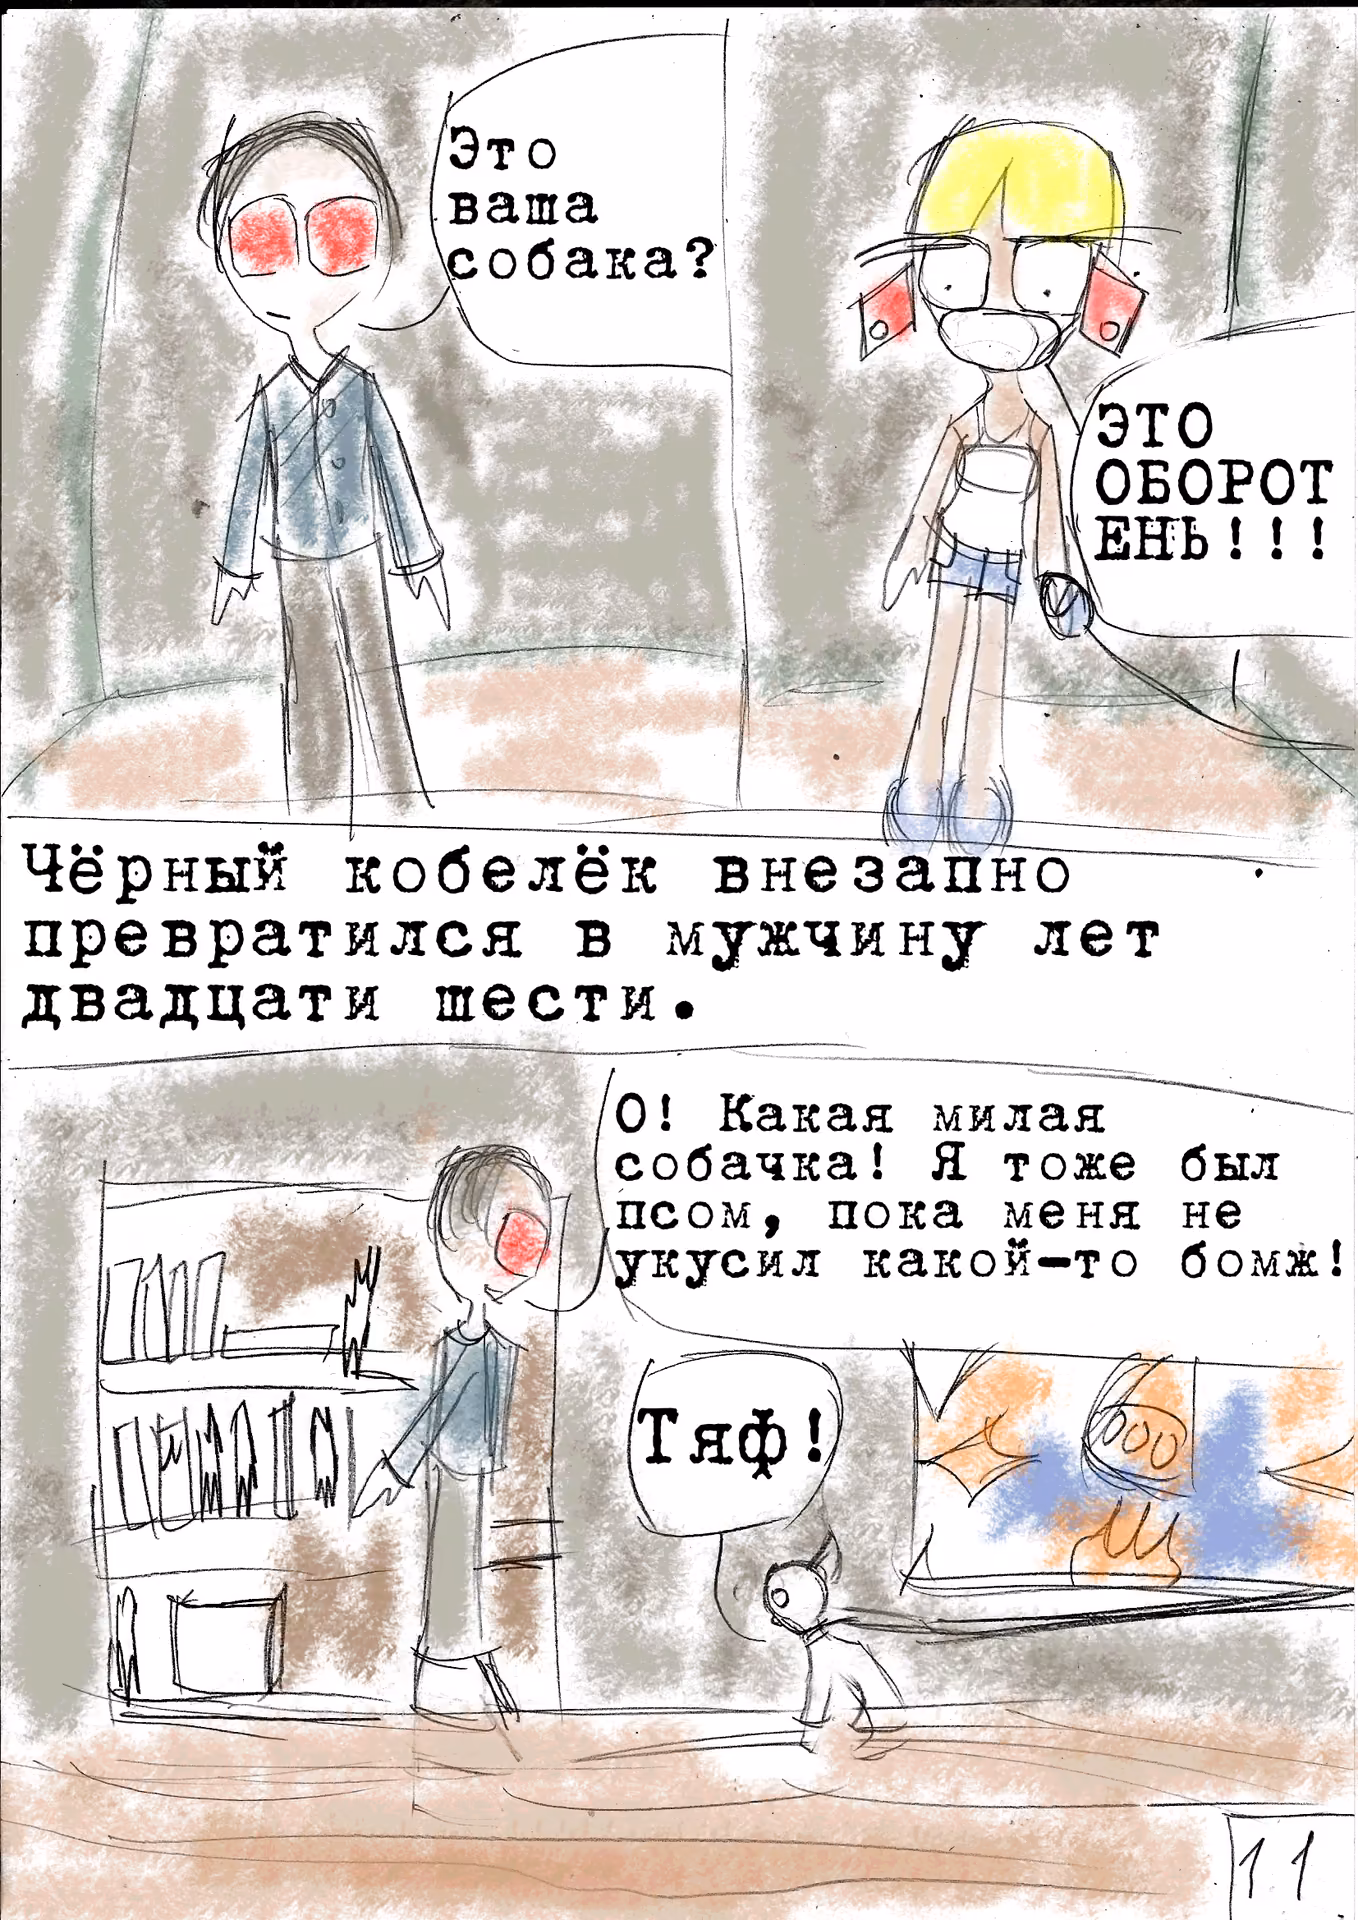 Это
ваша
собака?
ЭТО
ОБОРОТ
ЕНЬ!!!
Чёрный кобелёк внезапно
превратился в мужчину лет
двадцати шести.
О! Какая милая
собачка! Я тоже был
псом, пока меня не
укусил какой-то бомж!
Тяф!
11